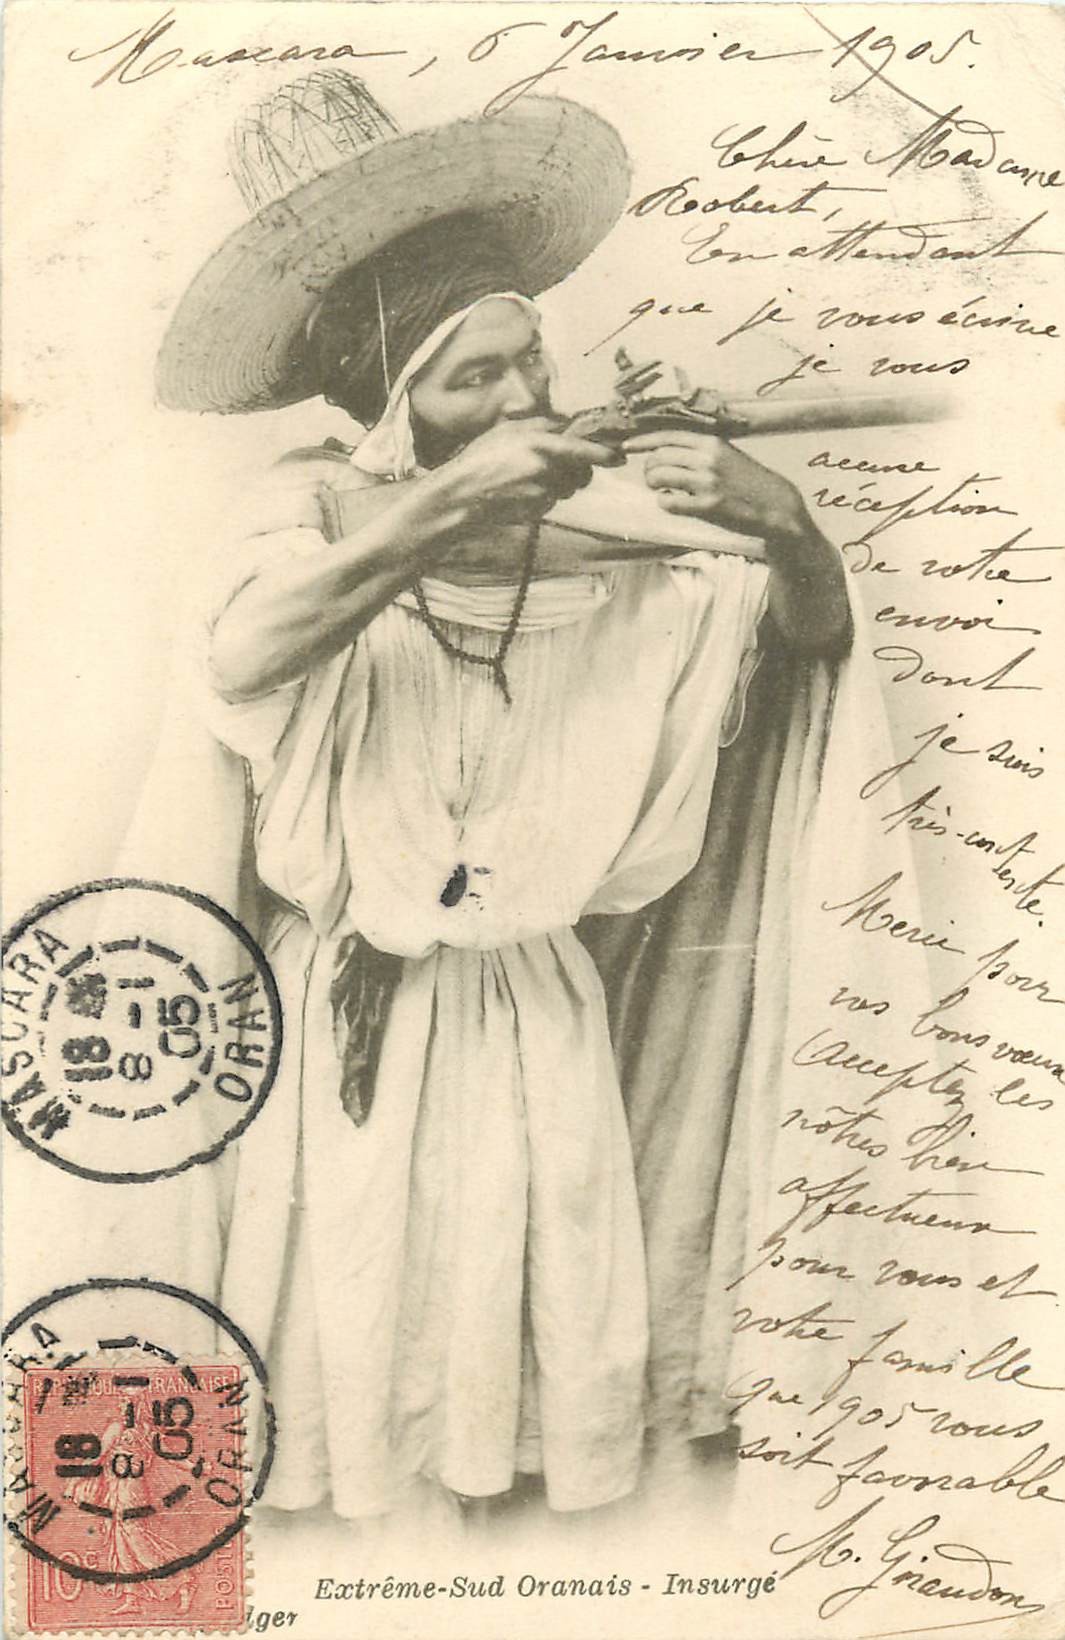 Mascara, 6 Janvier 1905.
Chère Madame
Robert,
En attendant
que je vous écrive
je vous
accuse
réception
de votre
envoi
dont
je suis
très-cont
ente.
Merci pour
vos bons vœux
Acceptez les
nôtres bien
affectueux
pour vous et
votre famille
que 1905 vous
soit favorable
M. Giraudon
MASCARA
18
8 -1
05
ORAN
MASCARA
18
8 -1
05
ORAN
REPUBLIQUE FRANÇAISE
10c
POSTES
Extrême-Sud Oranais - Insurgé
lger